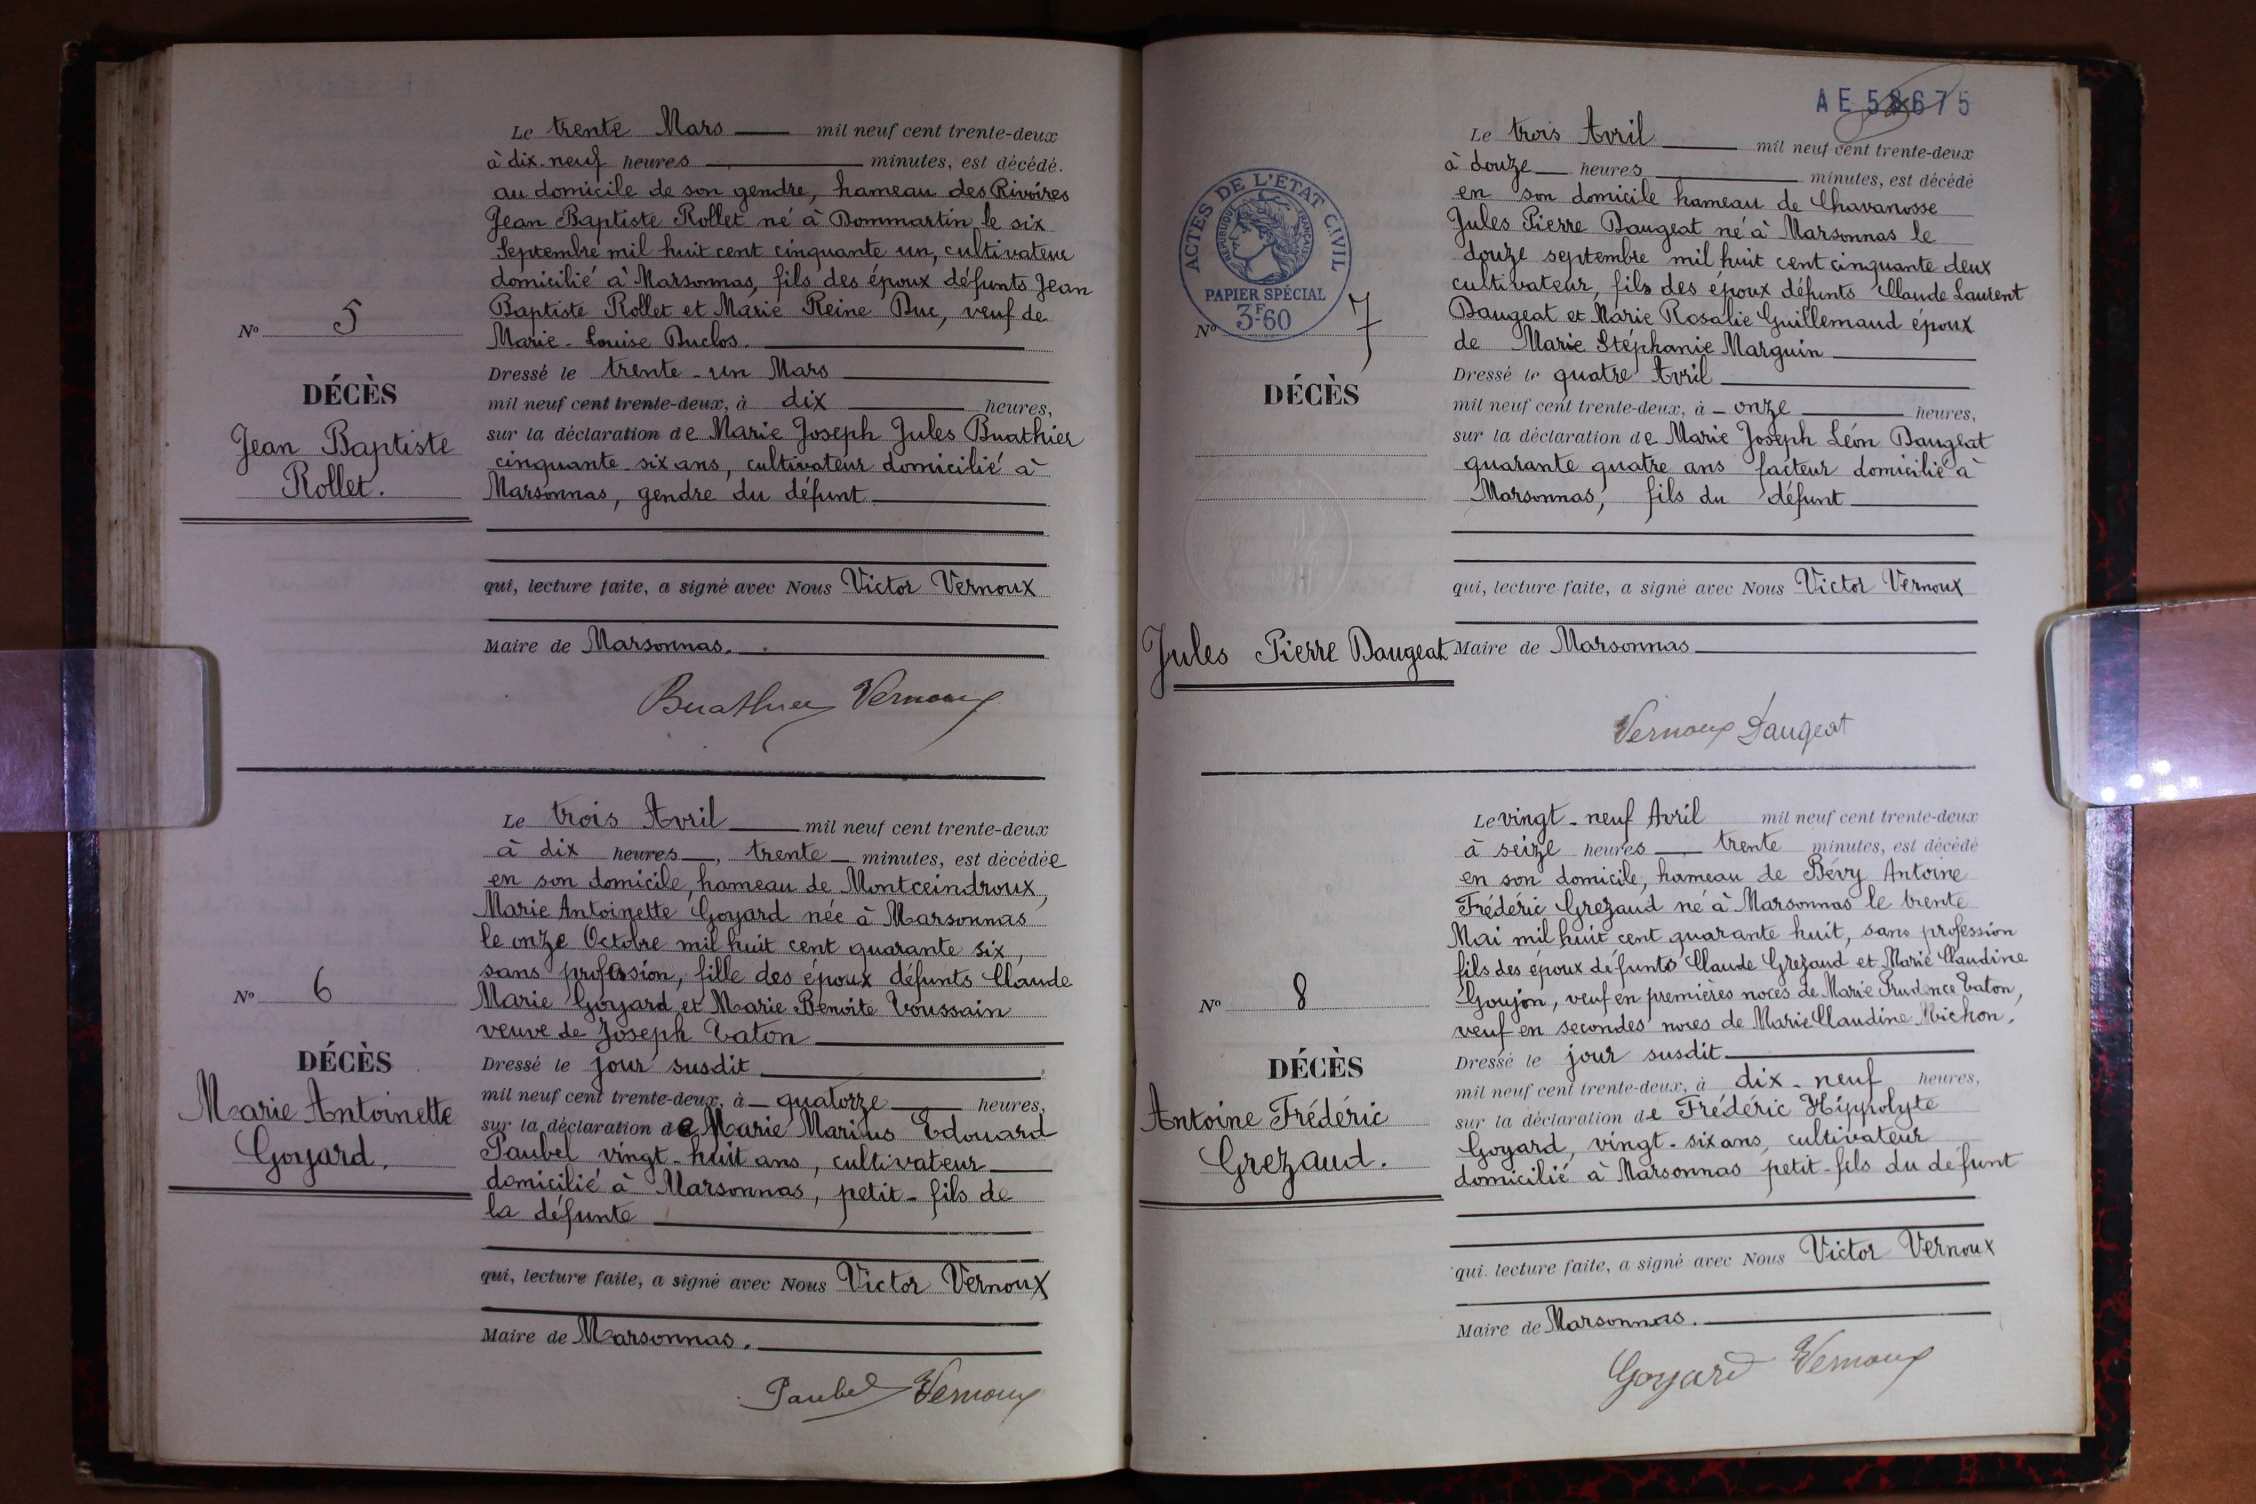 Le trente Mars mil neuf cent trente-deux
à dix-neuf heures minutes, est décédé.
au domicile de son gendre, hameau des Rivoires
Jean Baptiste Rollet né à Dommartin le six
Septembre mil huit cent cinquante un, cultivateur
domicilié à Marsonnas, fils des époux défunts Jean
Baptiste Rollet et Marie Reine Duc, veuf de
Marie-Louise Duclos.
Nº 5
DÉCÈS
Jean Baptiste
Rollet.
Dressé le trente-un Mars
mil neuf cent trente-deux, à dix heures,
sur la déclaration de Marie Joseph Jules Buathier
cinquante-six ans, cultivateur domicilié à
Marsonnas, gendre du défunt
qui, lecture faite, a signé avec Nous Victor Vernoux
Maire de Marsonnas.
Buathier Vernoux
Le trois Avril mil neuf cent trente-deux
à dix heures, trente minutes, est décédée
en son domicile, hameau de Montceindroux,
Marie Antoinette Goyard née à Marsonnas
le onze Octobre mil huit cent quarante six,
sans profession, fille des époux défunts Claude
Marie Goyard et Marie Benoite Toussain
veuve de Joseph Taton
Nº 6
DÉCÈS
Marie Antoinette
Goyard.
Dressé le jour susdit
mil neuf cent trente-deux, à quatorze heures,
sur la déclaration de Marie Marius Edouard
Paubel vingt-huit ans, cultivateur
domicilié à Marsonnas, petit-fils de
la défunte
qui, lecture faite, a signé avec Nous Victor Vernoux
Maire de Marsonnas.
Paubel Vernoux
AE 58675
Le trois Avril mil neuf cent trente-deux
à douze heures minutes, est décédé
en son domicile hameau de Chavanosse
Jules Pierre Daugeat né à Marsonnas le
douze septembre mil huit cent cinquante deux
cultivateur, fils des époux défunts Claude Laurent
Daugeat et Marie Rosalie Guillemaud époux
de Marie Stéphanie Marguin
ACTES DE L'ÉTAT CIVIL
RÉPUBLIQUE FRANÇAISE
PAPIER SPÉCIAL
3F60
Nº 7
DÉCÈS
Jules Pierre Daugeat
Dressé le quatre Avril
mil neuf cent trente-deux, à onze heures,
sur la déclaration de Marie Joseph Léon Daugeat
quarante quatre ans facteur domicilié à
Marsonnas, fils du défunt
qui, lecture faite, a signé avec Nous Victor Vernoux
Maire de Marsonnas
Vernoux Daugeat
Le vingt-neuf Avril mil neuf cent trente-deux
à seize heures trente minutes, est décédé
en son domicile, hameau de Bévy Antoine
Frédéric Grezaud né à Marsonnas le trente
Mai mil huit cent quarante huit, sans profession
fils des époux défunts Claude Grezaud et Marie Claudine
Goujon, veuf en premières noces de Marie Prudence Taton,
veuf en secondes noces de Marie Claudine Michon.
Nº 8
DÉCÈS
Antoine Frédéric
Grezaud.
Dressé le jour susdit
mil neuf cent trente-deux, à dix-neuf heures,
sur la déclaration de Frédéric Hippolyte
Goyard, vingt-six ans, cultivateur
domicilié à Marsonnas petit-fils du défunt
qui. lecture faite, a signé avec Nous Victor Vernoux
Maire de Marsonnas.
Goyard Vernoux